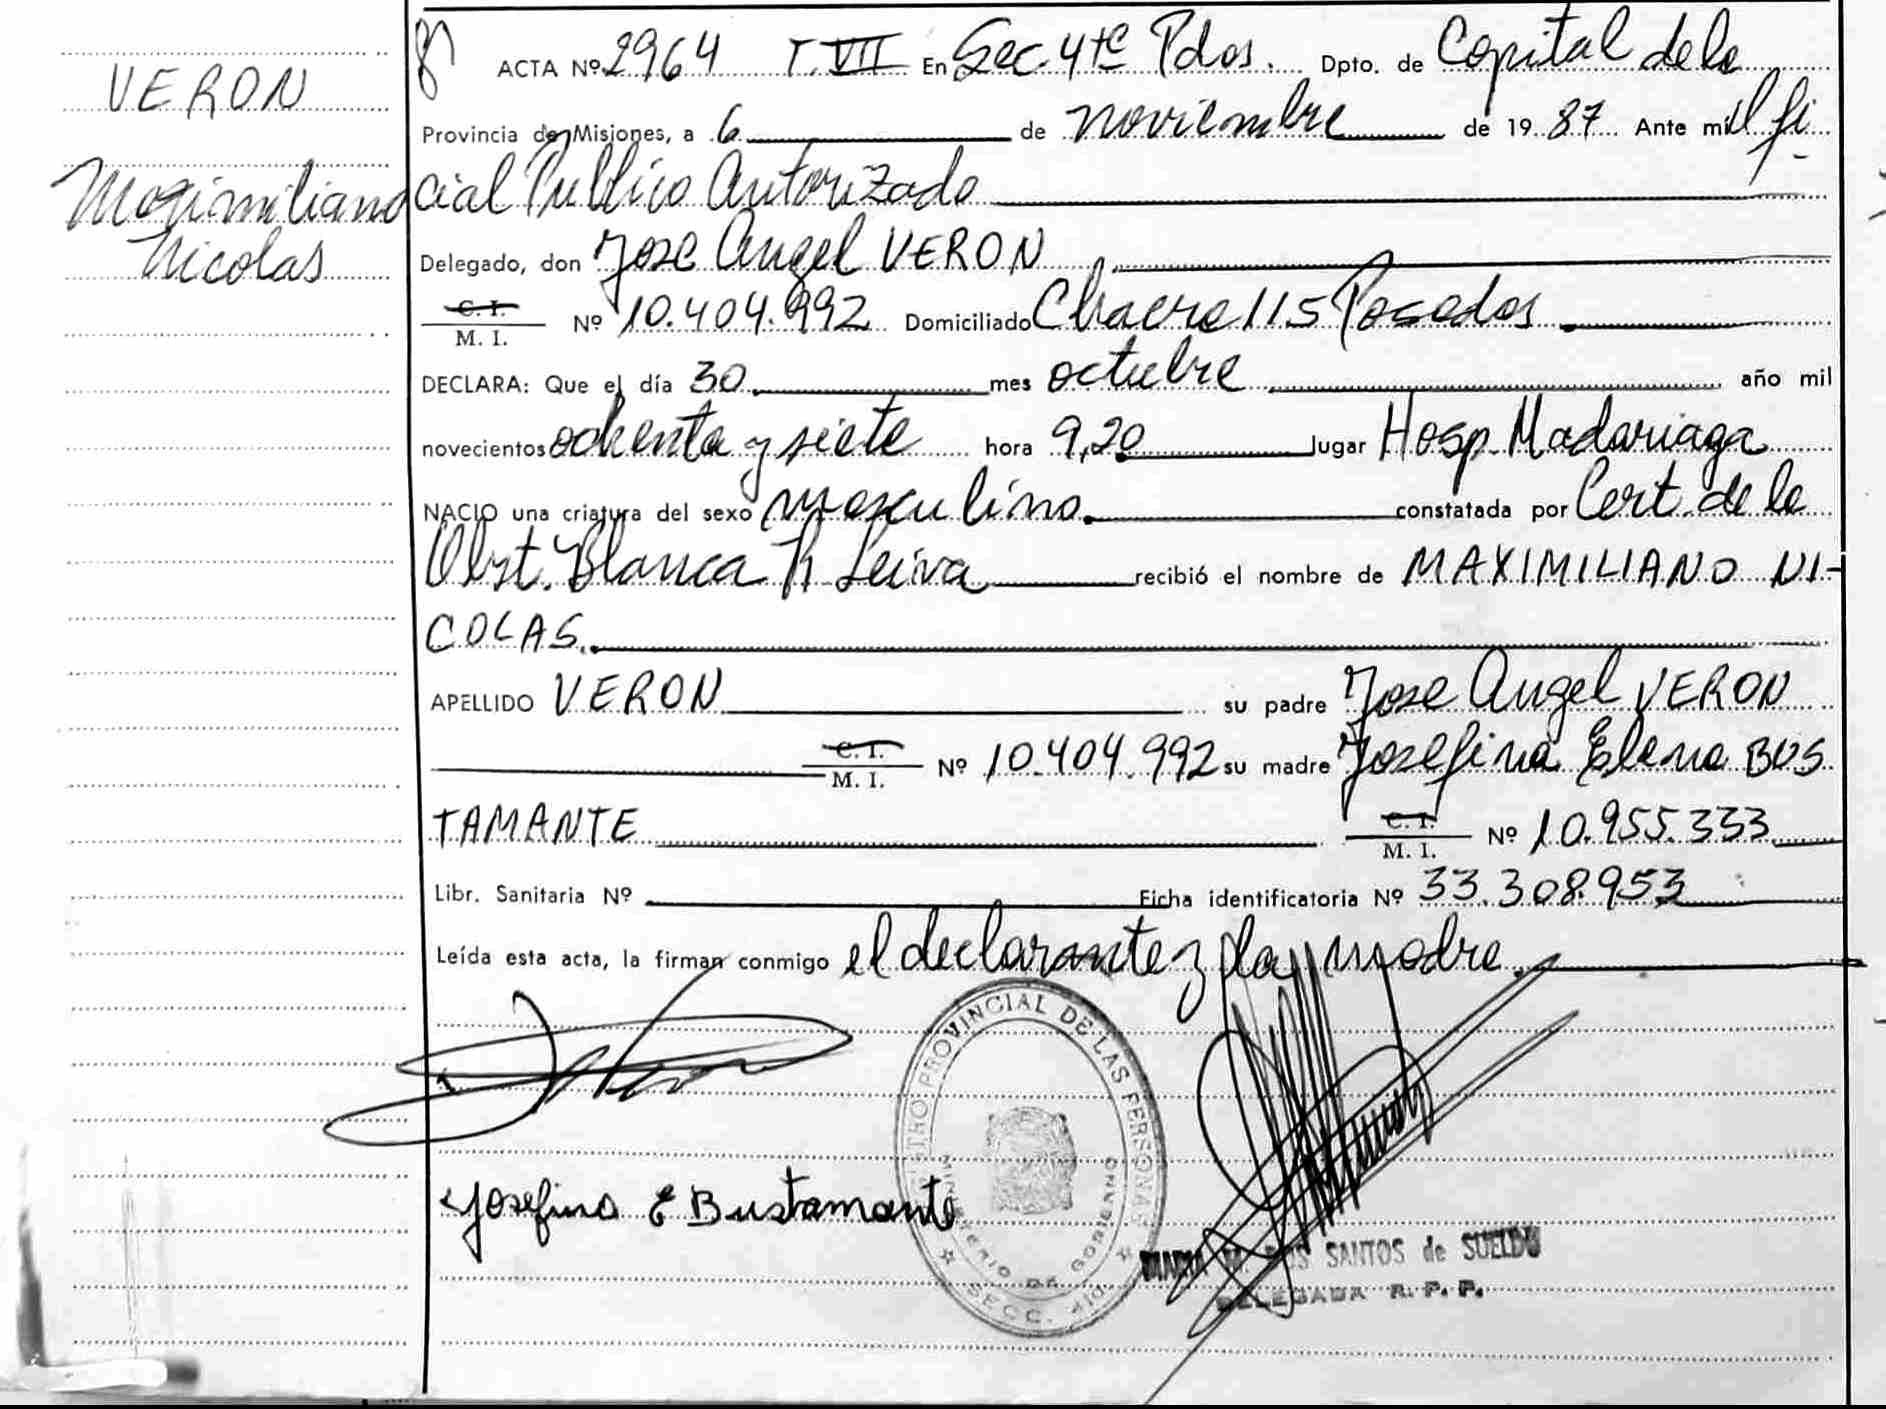 VERON
Maximiliano
Nicolas
ACTA Nº 2964 T. VII En Sec. 4ta Pdas. Dpto. de Capital de la
Provincia de Misiones, a 6 de noviembre de 1987 Ante mi Ofi
cial Público Autorizado
Delegado, don Jose Angel VERON
C. I.
M. I. Nº 10.404.992 Domiciliado Chacra 115 Posadas
DECLARA: Que el día 30 mes octubre año mil
novecientos ochenta y siete hora 9,20 lugar Hosp. Madariaga
NACIO una criatura del sexo masculino. constatada por Cert. de la
Obst. Blanca R Leiva recibió el nombre de MAXIMILIANO NI-
COLAS.
APELLIDO VERON su padre Jose Angel VERON
C. I.
M. I. Nº 10.404.992 su madre Josefina Elena BUS
TAMANTE C. I.
M. I. Nº 10.955.333
Libr. Sanitaria Nº Ficha identificatoria Nº 33.308.953
Leída esta acta, la firman conmigo el declarante y la madre.
REGISTRO PROVINCIAL DE LAS PERSONAS
MINISTERIO DE GOBIERNO
SECC. 4ta
Josefina E Bustamante
MARIA M. DOS SANTOS de SUELDO
DELEGADA R. P. P.